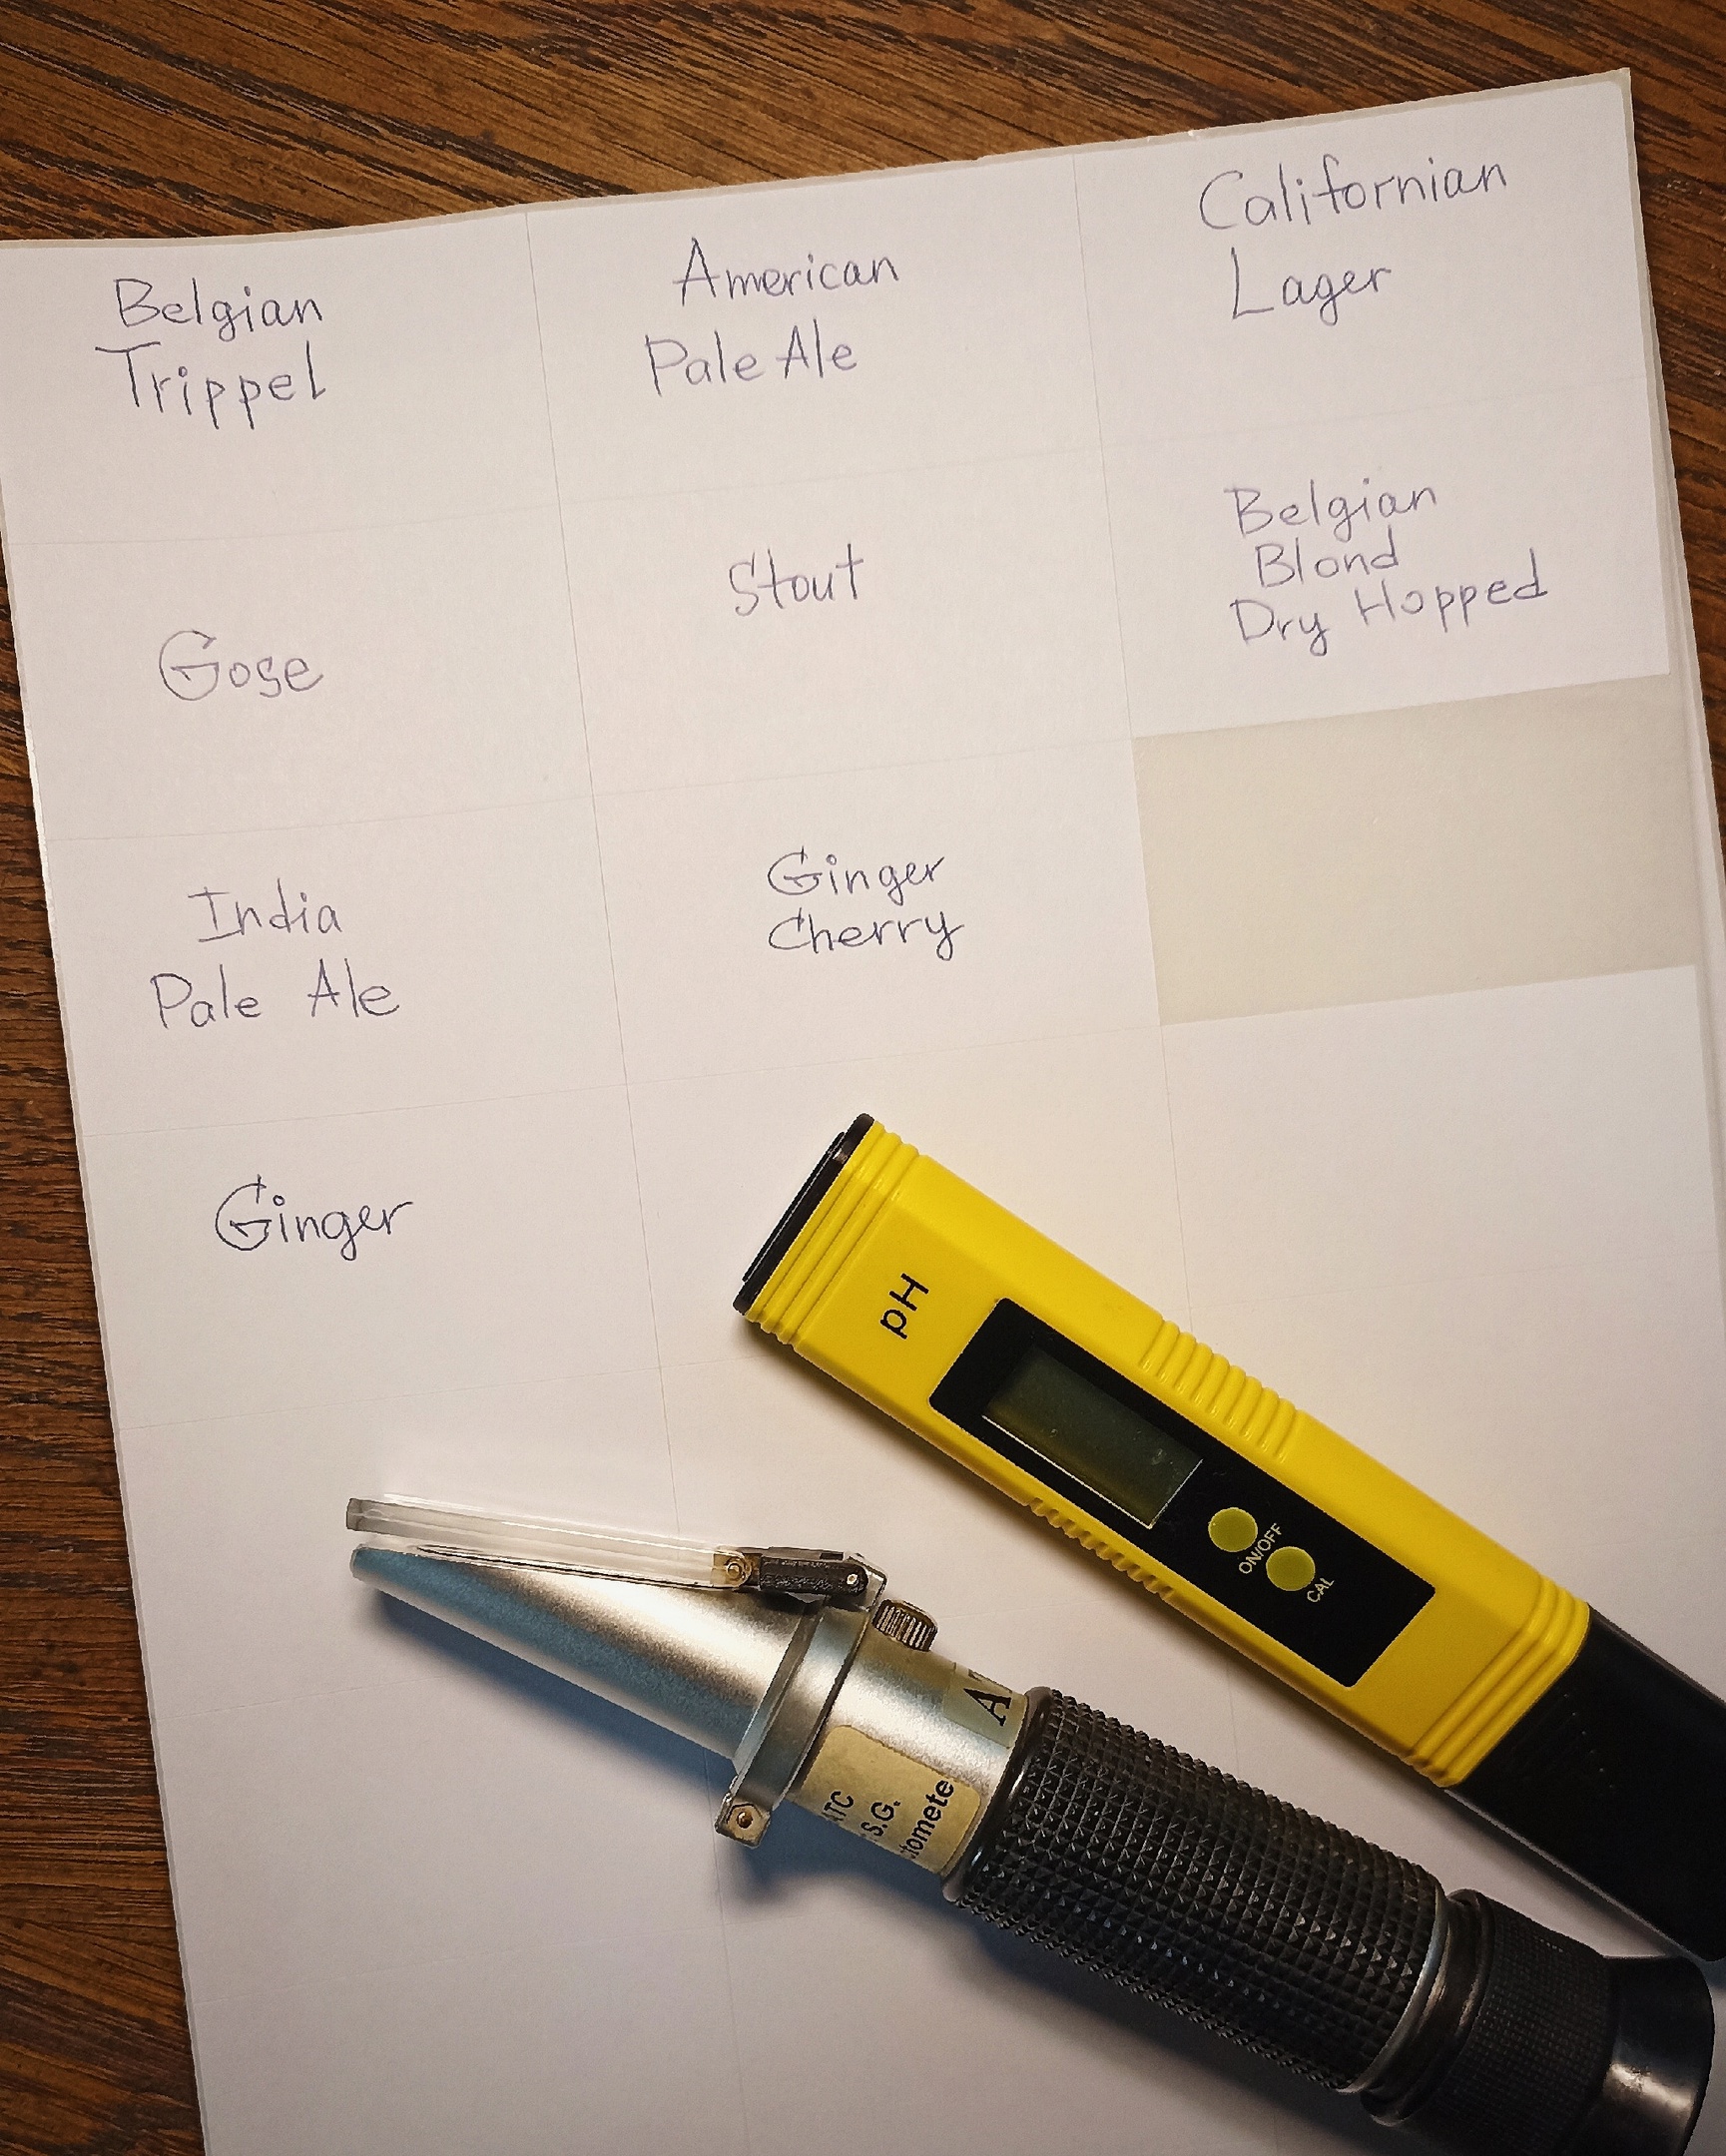 Belgian
Trippel
American
Pale Ale
Californian
Lager
Gose
Stout
Belgian
Blond
Dry Hopped
India
Pale Ale
Ginger
Cherry
Ginger
pH
ON/OFF
CAL
ATC
S.G.